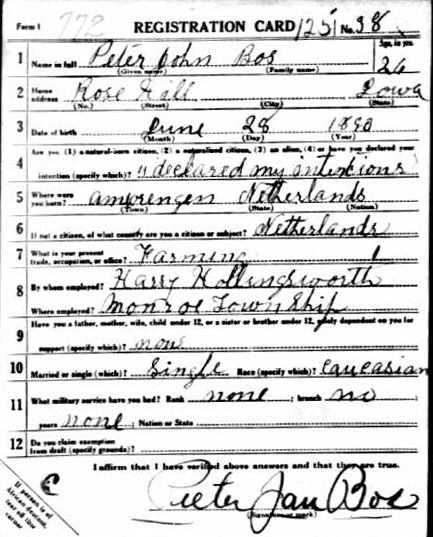 Form 1 772 REGISTRATION CARD 125 No. 38
1 Name in full Peter John Bos Age, in yrs. 26
(Given name) (Family name)
2 Home address Rose Hill Iowa
(No.) (Street) (City) (State)
3 Date of birth June 28 1890
(Month) (Day) (Year)
4 Are you (1) a natural-born citizen, (2) a naturalized citizen, (3) an alien, (4) or have you declared your
intention (specify which)? 4 declared my intentions
5 Where were you born? Netherlands
(Town) (State) (Nation)
6 If not a citizen, of what country are you a citizen or subject? Netherlands
7 What is your present trade, occupation, or office? Farming 1
8 By whom employed? Harry Hollingsworth
Where employed? Monroe Township
9 Have you a father, mother, wife, child under 12, or a sister or brother under 12, solely dependent on you for
support (specify which)? none
10 Married or single (which)? Single Race (specify which)? Caucasian
11 What military service have you had? Rank none ; branch no
years none ; Nation or State
12 Do you claim exemption from draft (specify grounds)?
I affirm that I have verified above answers and that they are true.
Pieter Jan Bos
(Signature or mark)
If person is of African descent, tear off this corner